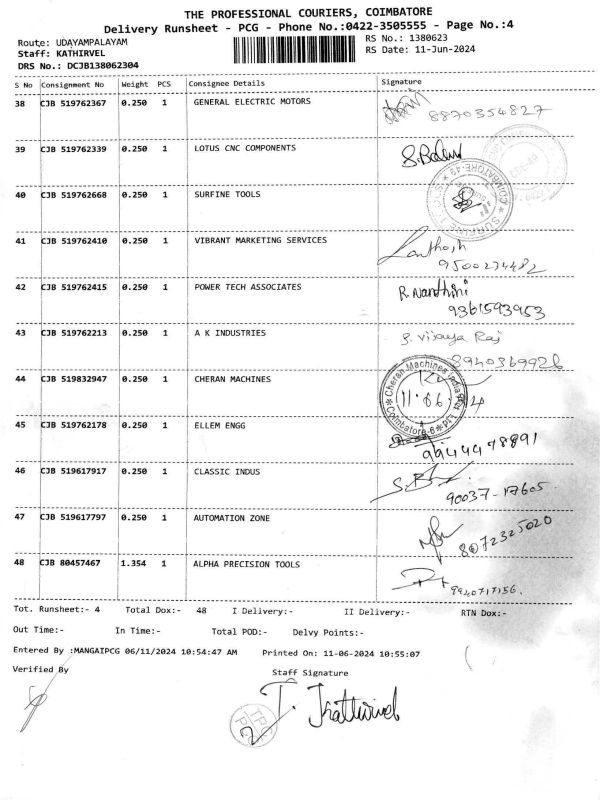 THE PROFESSIONAL COURIERS, COIMBATORE
Delivery Runsheet - PCG - Phone No.:0422-3505555 - Page No.:4
Route: UDAYAMPALAYAM RS No.: 1380623
Staff: KATHIRVEL RS Date: 11-Jun-2024
DRS No.: DCJB138062304
S No Consignment No Weight PCS Consignee Details Signature
38 CJB 519762367 0.250 1 GENERAL ELECTRIC MOTORS
8870354827
39 CJB 519762339 0.250 1 LOTUS CNC COMPONENTS
40 CJB 519762668 0.250 1 SURFINE TOOLS
41 CJB 519762410 0.250 1 VIBRANT MARKETING SERVICES Santhosh
9500274482
42 CJB 519762415 0.250 1 POWER TECH ASSOCIATES R. Nanthini
9361593953
43 CJB 519762213 0.250 1 A K INDUSTRIES S. Vijaya Raj
8940369926
44 CJB 519832947 0.250 1 CHERAN MACHINES Cheran Machines India Pvt Ltd
11.06.24
Coimbatore-6
45 CJB 519762178 0.250 1 ELLEM ENGG
9944478891
46 CJB 519617917 0.250 1 CLASSIC INDUS
90037-17605
47 CJB 519617797 0.250 1 AUTOMATION ZONE
8072325020
48 CJB 80457467 1.354 1 ALPHA PRECISION TOOLS
9940717156.
Tot. Runsheet:- 4 Total Dox:- 48 I Delivery:- II Delivery:- RTN Dox:-
Out Time:- In Time:- Total POD:- Delvy Points:-
Entered By :MANGAIPCG 06/11/2024 10:54:47 AM Printed On: 11-06-2024 10:55:07
Verified By Staff Signature
T. Kathirvel